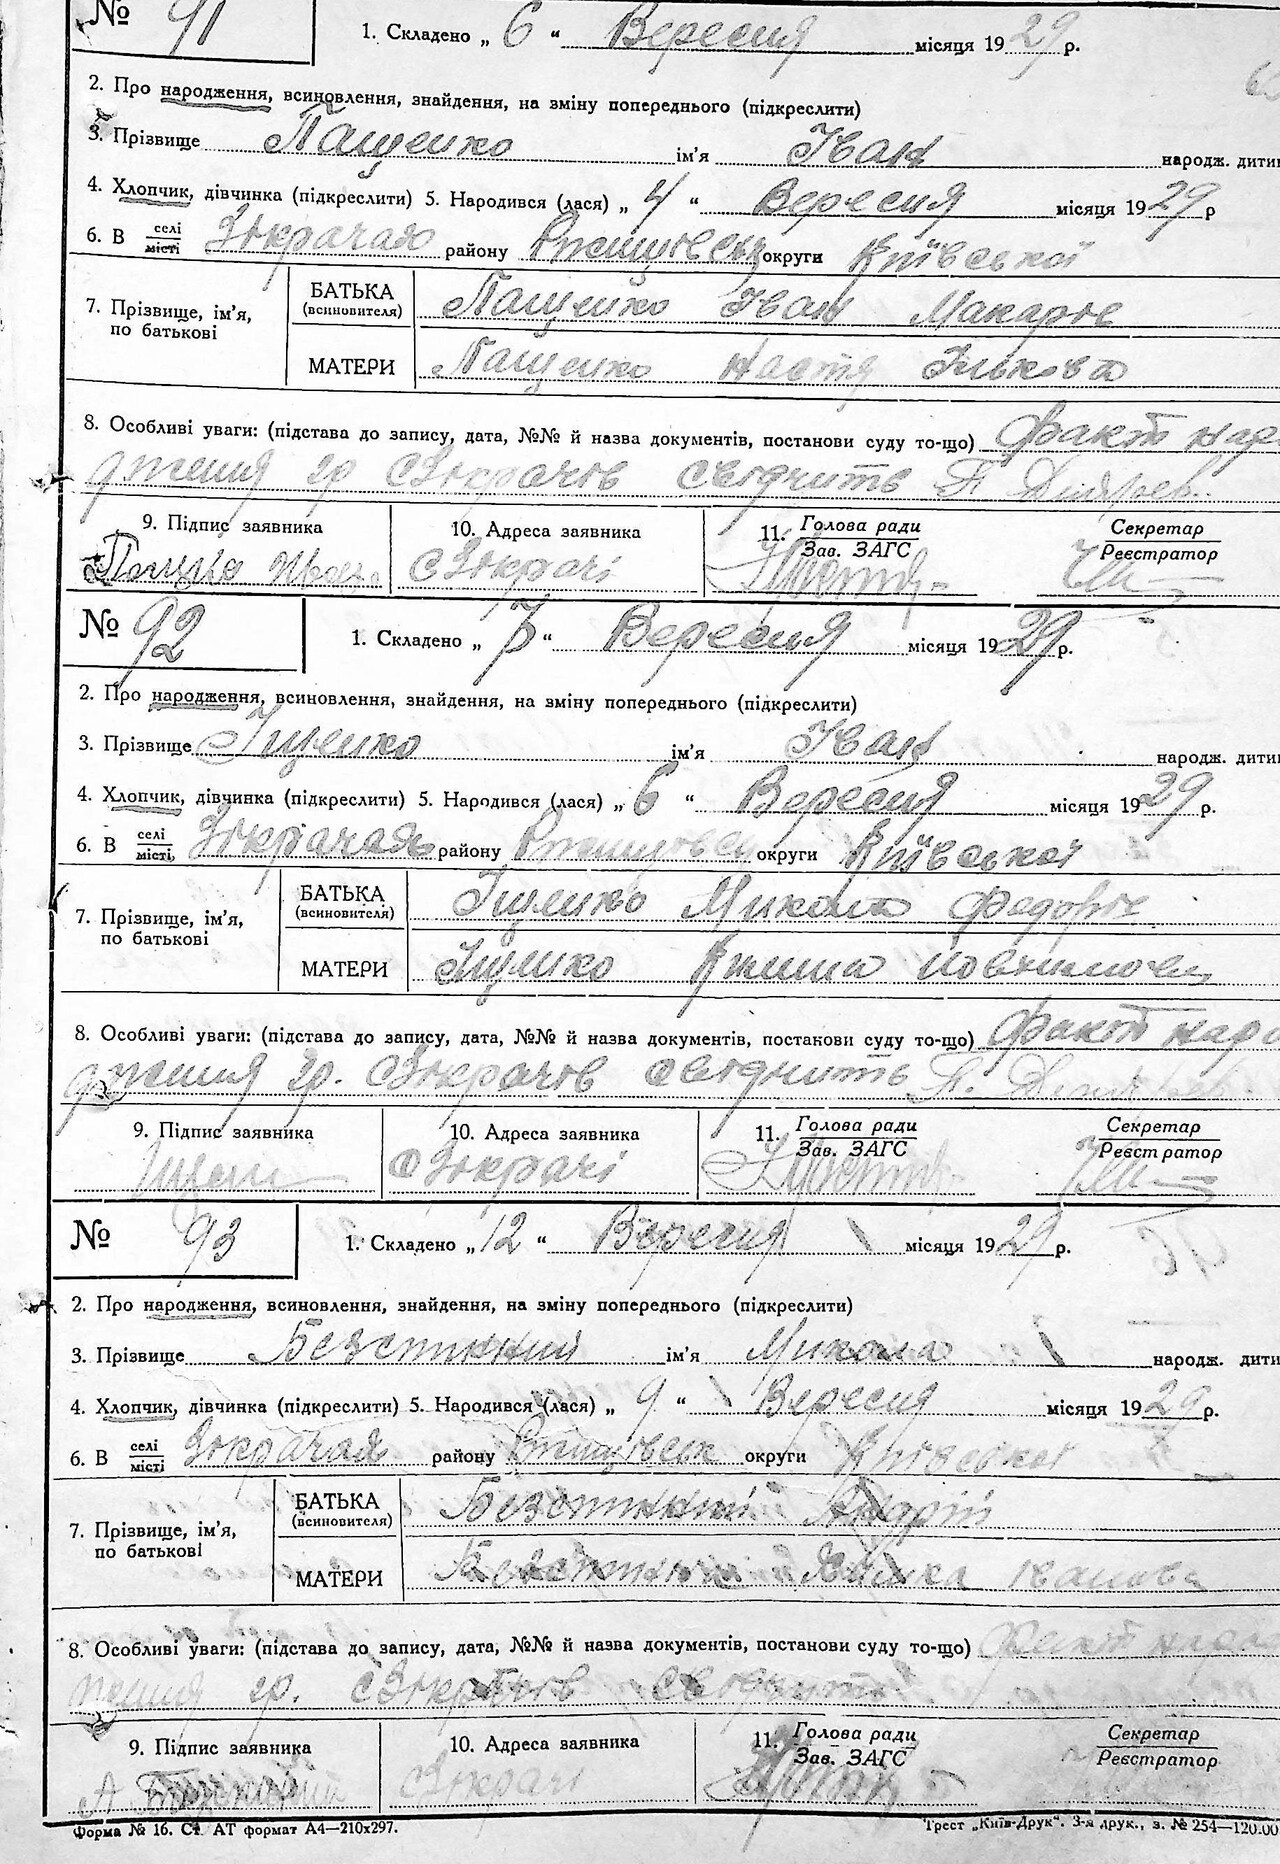 № 91 1. Складено „ 6 “ Вересня місяця 1929 р.
2. Про народження, всиновлення, знайдення, на зміну попереднього (підкреслити)
3. Прізвище Пащенко ім'я Іван народж. дити
4. Хлопчик, дівчинка (підкреслити) 5. Народився (лася) „ 4 “ Вересня місяця 1929 р
6. В селі місті Зікрачах району округи Київської
7. Прізвище, ім'я, по батькові БАТЬКА (всиновителя) Пащенко Іван Макарів
МАТЕРИ Пащенко Настя Ількова
8. Особливі уваги: (підстава до запису, дата, №№ й назва документів, постанови суду то-що) Факт наро
дження гр сЗікрачів свідчить П
9. Підпис заявника 10. Адреса заявника 11. Голова ради Зав. ЗАГС Секретар Реєстратор
сЗікрачі
№ 92 1. Складено „ 7 “ Вересня місяця 1929 р.
2. Про народження, всиновлення, знайдення, на зміну попереднього (підкреслити)
3. Прізвище Іщенко ім'я Іван народж. дити
4. Хлопчик, дівчинка (підкреслити) 5. Народився (лася) „ 6 “ Вересня місяця 1929 р.
6. В селі місті, Зікрачах району округи Київської
7. Прізвище, ім'я, по батькові БАТЬКА (всиновителя) Іщенко Микола Федорів
МАТЕРИ Іщенко
8. Особливі уваги: (підстава до запису, дата, №№ й назва документів, постанови суду то-що) Факт наро
дження гр. сЗікрачів свідчить П.
9. Підпис заявника 10. Адреса заявника 11. Голова ради Зав. ЗАГС Секретар Реєстратор
сЗікрачі
№ 93 1. Складено „ 12 “ Вересня місяця 1929 р.
2. Про народження, всиновлення, знайдення, на зміну попереднього (підкреслити)
3. Прізвище ім'я Микола народж. дити
4. Хлопчик, дівчинка (підкреслити) 5. Народився (лася) „ 9 “ Вересня місяця 1929 р.
6. В селі місті Зікрачах району округи Київської
7. Прізвище, ім'я, по батькові БАТЬКА (всиновителя) Андрій
МАТЕРИ Іванова
8. Особливі уваги: (підстава до запису, дата, №№ й назва документів, постанови суду то-що) Факт наро
ження гр. сЗікрачів свідчить
9. Підпис заявника 10. Адреса заявника 11. Голова ради Зав. ЗАГС Секретар Реєстратор
Зікрачі
Форма № 16. Ст. АТ формат А4—210х297. Трест „Київ-Друк“. 3-я друк., з. № 254—120.00